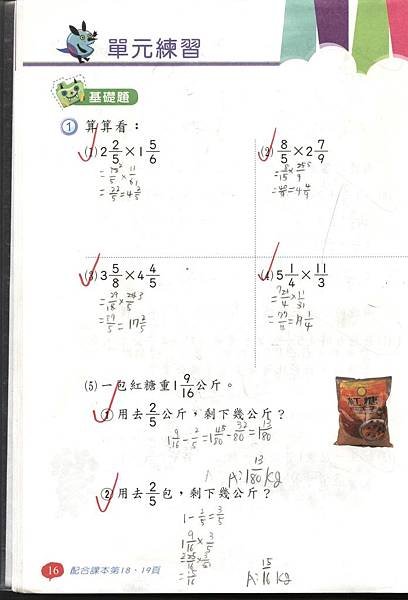 單元練習
基礎題
① 算算看：
(1) 2 2/5 × 1 5/6
= 12/5 × 11/6
= 22/5 = 4 2/5
(2) 8/5 × 2 7/9
= 8/5 × 25/9
= 40/9 = 4 4/9
(3) 3 5/8 × 4 4/5
= 29/8 × 24/5
= 17 2/5
(4) 5 1/4 × 11/3
= 21/4 × 11/3
(5) 一包紅糖重1 9/16公斤。
① 用去2/5公斤，剩下幾公斤？
1 9/16 - 2/5 = 1 45/80 - 32/80 = 1 13/80
A: 1 13/80 kg
紅糖
② 用去2/5包，剩下幾公斤？
1 - 2/5 = 3/5
1 9/16 × 3/5
= 25/16 × 3/5
= 15/16
A: 15/16 kg
16 配合課本第18、19頁